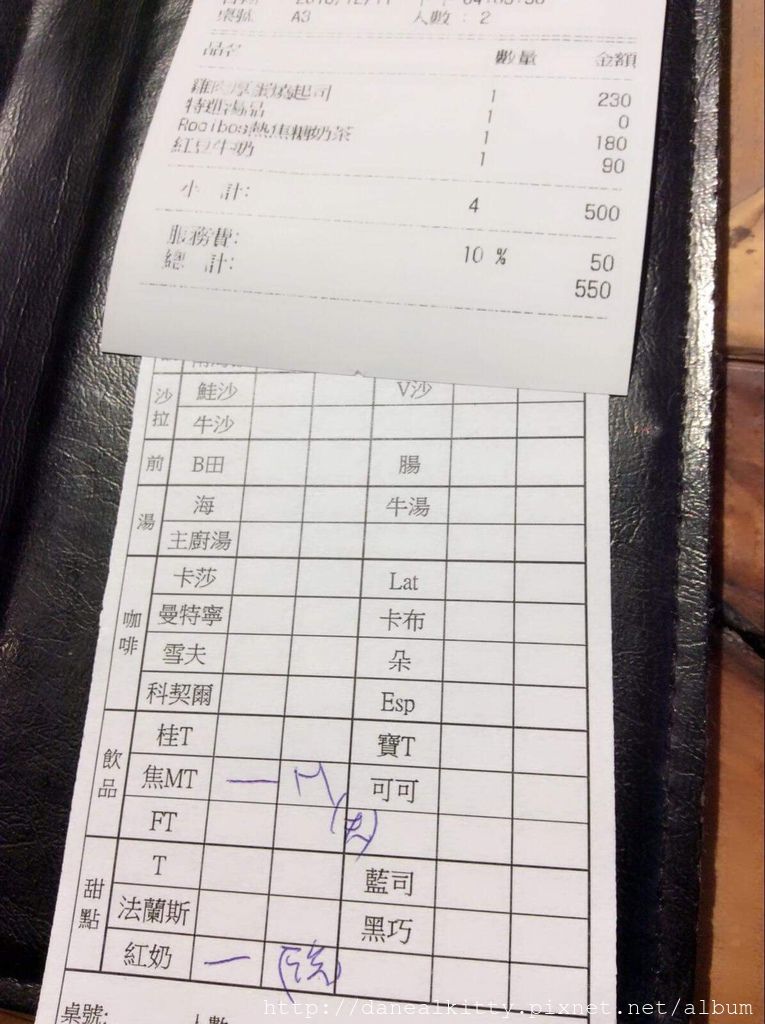 桌號 A3 人數 : 2
品名 數量 金額
雞肉厚蛋燒起司 1 230
特選湯品 1 0
Rooibos熱焦糖奶茶 1 180
紅豆牛奶 1 90
小 計: 4 500
服務費: 10 % 50
總 計: 550
沙拉 鮭沙 V沙
牛沙
前 B田 腸
湯 海 牛湯
主廚湯
咖啡 卡莎 Lat
曼特寧 卡布
雪夫 朵
科契爾 Esp
飲品 桂T 寶T
焦MT 一 可可
FT
甜點 T 藍司
法蘭斯 黑巧
紅奶 一
桌號: 人數
http://danealkitty.pixnet.net/album